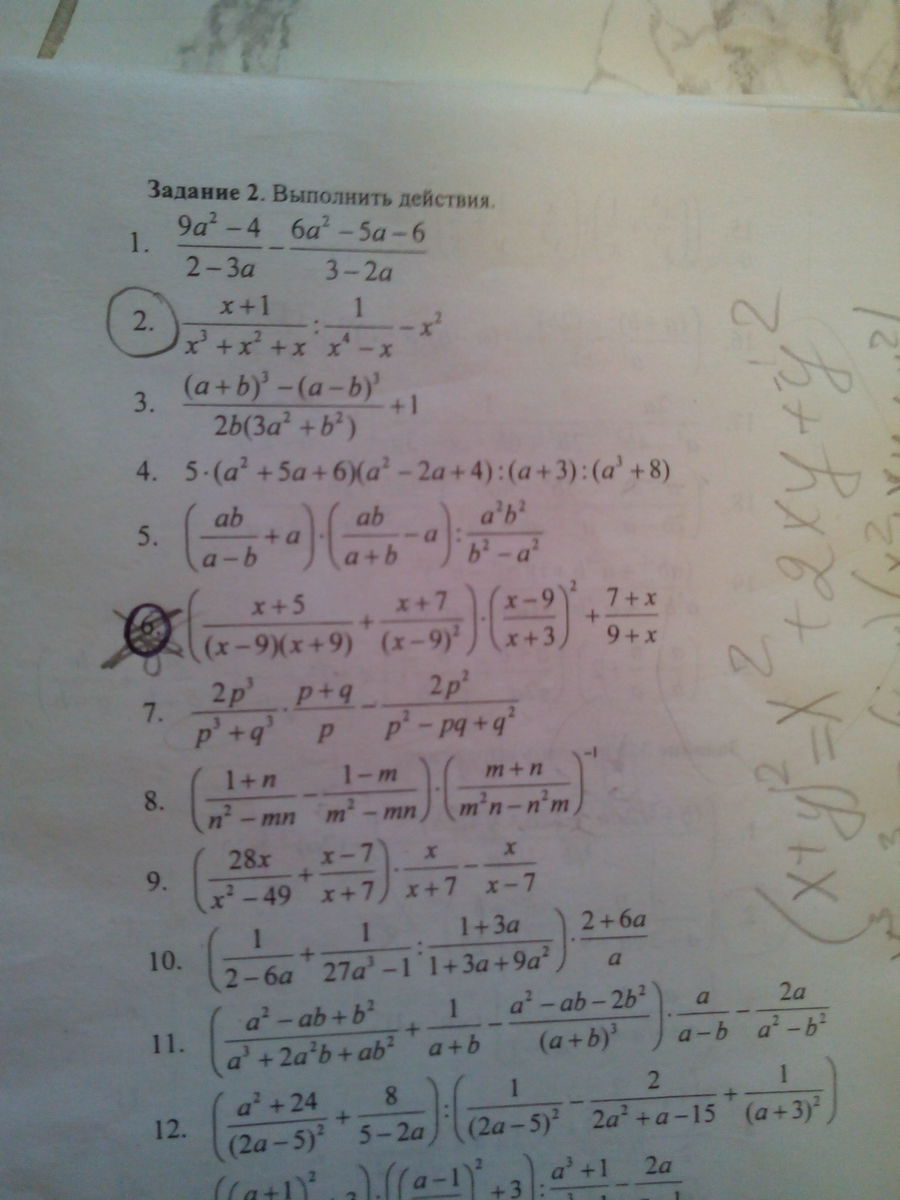 Задание 2. Выполнить действия.
1. \frac{9a^2-4}{2-3a} - \frac{6a^2-5a-6}{3-2a}
2. \frac{x+1}{x^3+x^2+x} : \frac{1}{x^4-x} - x^2
3. \frac{(a+b)^3-(a-b)^3}{2b(3a^2+b^2)} + 1
4. 5·(a^2+5a+6)(a^2-2a+4):(a+3):(a^3+8)
5. (\frac{ab}{a-b}+a)·(\frac{ab}{a+b}-a):\frac{a^2b^2}{b^2-a^2}
6. (\frac{x+5}{(x-9)(x+9)}+\frac{x+7}{(x-9)^2})·(\frac{x-9}{x+3})^2+\frac{7+x}{9+x}
7. \frac{2p^3}{p^3+q^3}·\frac{p+q}{p}-\frac{2p^2}{p^2-pq+q^2}
8. (\frac{1+n}{n^2-mn}-\frac{1-m}{m^2-mn})·(\frac{m+n}{m^2n-n^2m})^{-1}
9. (\frac{28x}{x^2-49}+\frac{x-7}{x+7})·\frac{x}{x+7}-\frac{x}{x-7}
10. (\frac{1}{2-6a}+\frac{1}{27a^3-1}:\frac{1+3a}{1+3a+9a^2})·\frac{2+6a}{a}
11. (\frac{a^2-ab+b^2}{a^3+2a^2b+ab^2}+\frac{1}{a+b}-\frac{a^2-ab-2b^2}{(a+b)^3})·\frac{a}{a-b}-\frac{2a}{a^2-b^2}
12. (\frac{a^2+24}{(2a-5)^2}+\frac{8}{5-2a}):(\frac{1}{(2a-5)^2}-\frac{2}{2a^2+a-15}+\frac{1}{(a+3)^2})
(x+y)^2=x^2+2xy+y^2